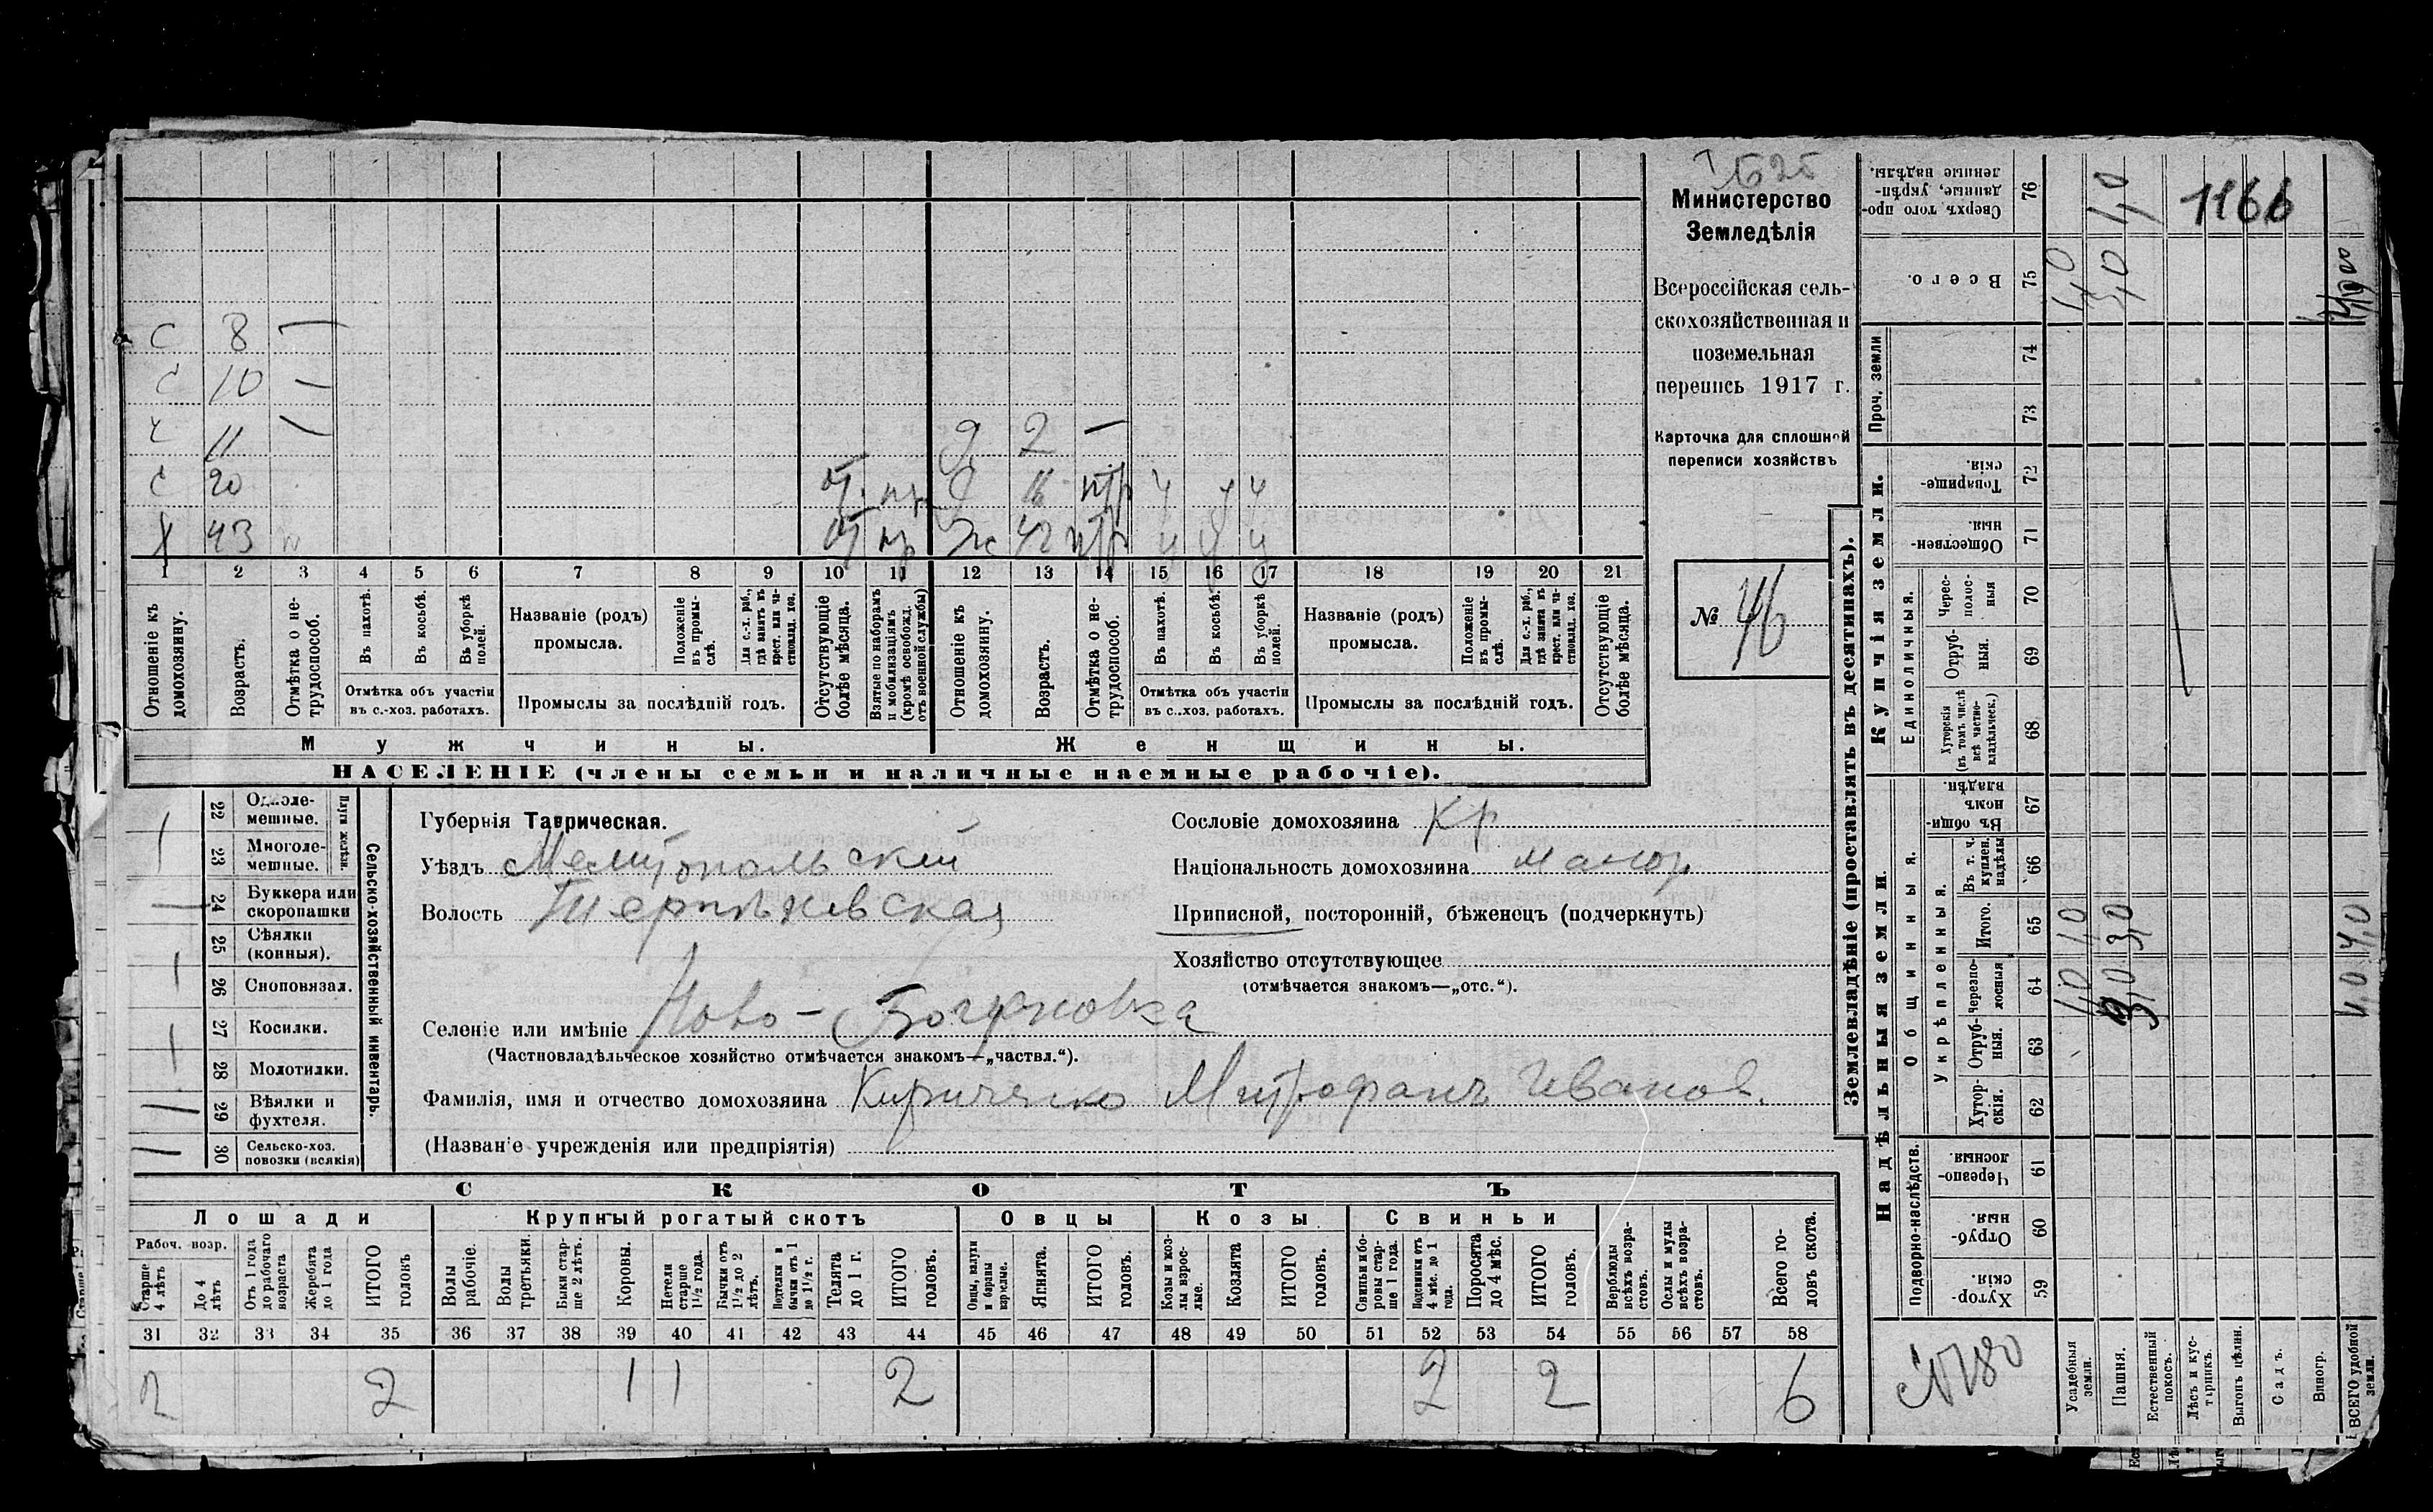 Министерство
Земледѣлія
Всероссійская сель-
скохозяйственная и
поземельная
перепись 1917 г.
Карточка для сплошной
переписи хозяйствъ
№ 46
1166
с 8 —
с 10 —
11 —
с 20
Х 43
д 2 —
ж 42 нтр
1 2 3 4 5 6 7 8 9 10 11 12 13 14 15 16 17 18 19 20 21
Отношеніе къ домохозяину.
Возрастъ.
Отмѣтка о не-трудоспособ.
Въ пахотѣ.
Въ косьбѣ.
Въ уборкѣ полей.
Отмѣтка объ участіи
въ с.-хоз. работахъ.
Названіе (родъ)
промысла.
Положеніе въ промы-слѣ.
Для с.-х. раб., гдѣ занятъ въ крест. или ча-стновлад. хоз.
Промыслы за послѣдній годъ.
Отсутствующіе болѣе мѣсяца.
Взятые по наборамъ и мобилизаціямъ (кромѣ освобожд. отъ военной службы)
Отношеніе къ домохозяину.
Возрастъ.
Отмѣтка о не-трудоспособ.
Въ пахотѣ.
Въ косьбѣ.
Въ уборкѣ полей.
Отмѣтка объ участіи
въ с.-хоз. работахъ.
Названіе (родъ)
промысла.
Положеніе въ промы-слѣ.
Для с.-х. раб., гдѣ занята въ крест. или ча-стновлад. хоз.
Промыслы за послѣдній годъ.
Отсутствующіе болѣе мѣсяца.
Мужчины. Женщины.
НАСЕЛЕНІЕ (члены семьи и наличные наемные рабочіе).
Сельско-хозяйственный инвентарь.
Плуги желѣзн.
22 Одноле-мешные.
23 Многоле-мешные.
24 Буккера или скоропашки
25 Сѣялки (конныя).
26 Сноповязал.
27 Косилки.
28 Молотилки.
29 Вѣялки и фухтеля.
30 Сельско-хоз. повозки (всякія)
Губернія Таврическая.
Уѣздъ Мелитопольскій
Волость Терпѣнievская
Селеніе или имѣніе Ново-Богдановка
(Частновладѣльческое хозяйство отмѣчается знакомъ—„частвл.“).
Фамилія, имя и отчество домохозяина Кириченко Митрофанъ Иванов.
(Названіе учрежденія или предпріятія)
Сословіе домохозяина Кр
Національность домохозяина малор
Приписной, посторонній, бѣженецъ (подчеркнуть)
Хозяйство отсутствующее
(отмѣчается знакомъ—„отс.“).
СКОТЪ
Лошади Крупный рогатый скотъ Овцы Козы Свиньи
Рабоч. возр.
Старше 4 лѣтъ
До 4 лѣтъ
Отъ 1 года до рабочаго возраста
Жеребята до 1 года
ИТОГО головъ
Волы рабочіе.
Волы третьяки.
Быки стар-ше 2 лѣтъ.
Коровы.
Нетели старше 1 1/2 года.
Бычки отъ 1 1/2 до 2 лѣтъ.
Подтелки и бычки отъ 1 до 1 1/2 г.
Телята до 1 г.
ИТОГО головъ.
Овцы, валухи и бараны взрослые.
Ягнята.
ИТОГО головъ.
Козы и коз-лы взрос-лые.
Козлята
ИТОГО головъ.
Свиньи и бо-ровы стар-ше 1 года.
Подсвинки отъ 4 мѣс. до 1 года.
Поросята до 4 мѣс.
ИТОГО головъ.
Верблюды всѣхъ возра-стовъ.
Ослы и мулы всѣхъ возра-стовъ.
Всего го-ловъ скота.
31 32 33 34 35 36 37 38 39 40 41 42 43 44 45 46 47 48 49 50 51 52 53 54 55 56 57 58
2 2 1 1 2 2 2 6
Землевладѣніе (проставлять въ десятинахъ).
Надѣльныя земли.
Купчія земли.
Проч. земли
Подворно-наслѣдств.
Общинныя.
Укрѣпленныя.
Единоличныя.
59 Хутор-скія.
60 Отруб-ныя.
61 Черезпо-лосныя
62 Хутор-скія.
63 Отруб-ныя.
64 Черезпо-лосныя
65 Итого.
66 Въ т. ч. куплен. надѣлы
67 Въ общи-номъ владѣн.
68 Хуторскія (въ томъ числѣ всѣ частно-владѣльческ.)
69 Отруб-ныя.
70 Черес-полос-ныя
71 Обществен-ныя.
72 Товарище-скія.
73
74
75 Всего.
76 Сверхъ того про-данные, укрѣп-ленные надѣлы.
№180
Усадебныя земли. 1,0 1,0 1,0
Пашня. 3,0 3,0 3,0 1,0
Естественный покосъ.
Лѣсъ и кус-тарникъ.
Выгонъ цѣлин.
Садъ.
Виногр.
ВСЕГО удобной земли. 4,0 4,0